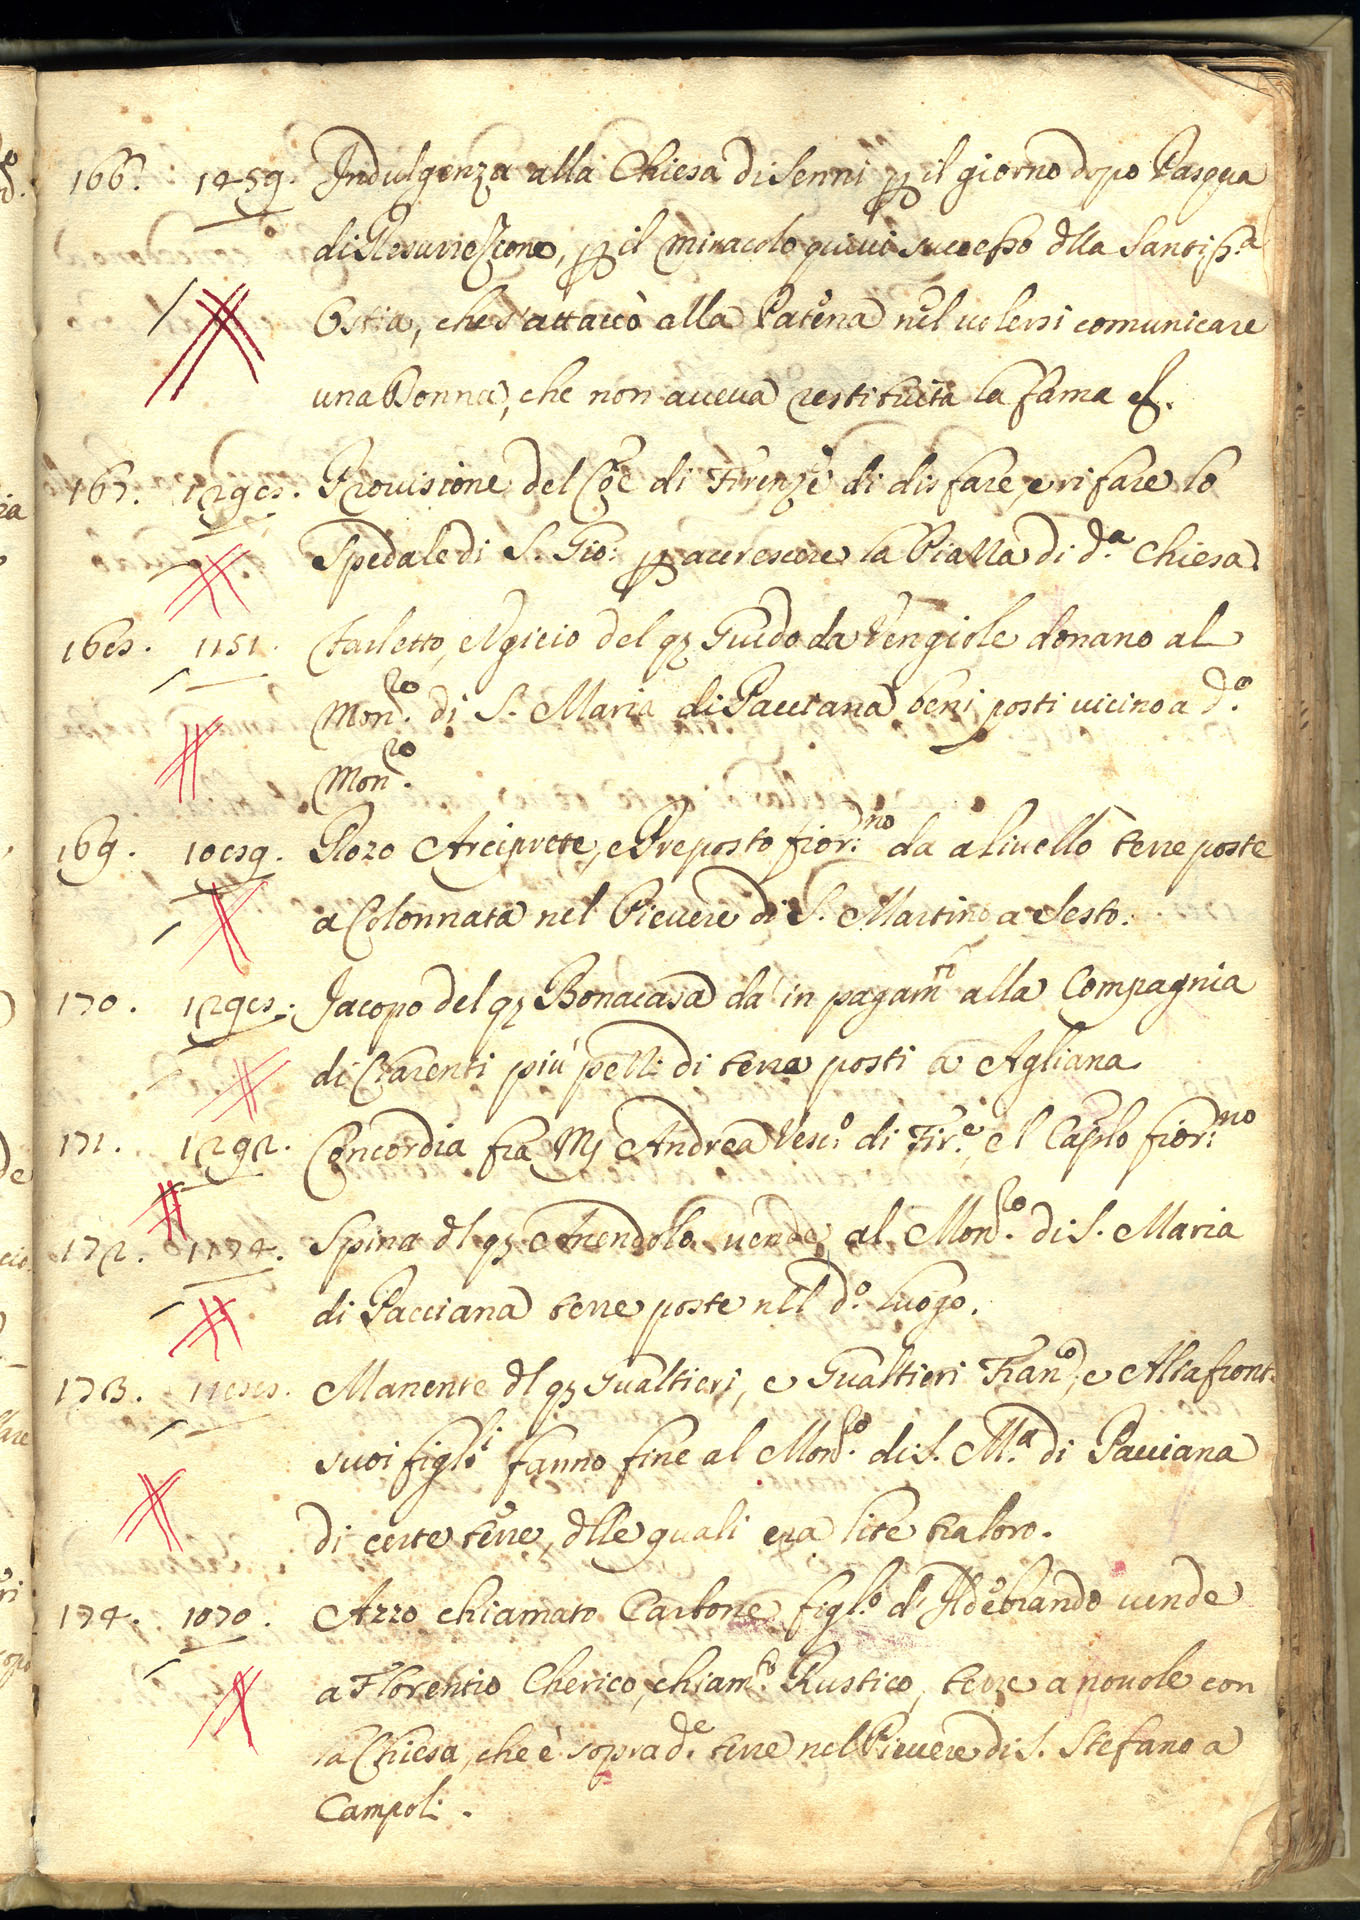 166. 1459. Indulgenza alla Chiesa di Senni p il giorno dopo Pasqua
di Resurrezione, p il miracolo quivi successo dlla Santiss.a
Ostia, che s'attaccò alla Patena nel volersi comunicare
una Donna, che non aveva restituita la fama
167. 1298. Provisione del Coe di Firenze di disfare, e rifare lo
Spedale di S. Gio: p accrescere la Piazza di d.a Chiesa.
168. 1151. e del q Guido da Vengiole donano al
Mon.ro di S. Maria di Pacciana beni posti vicino a d.o
Mon.ro
169. 1089. Rozo Arciprete, e Preposto fior:no da a livello terre poste
a Colonnata nel Pievere di S. Martino a Sesto.
170. 1298. Jacopo del q Bonacasa dà in pagam.ti alla Compagnia
di più pezzi di terra posti a Agliana
171. 1292. Concordia fra Ms Andrea Vesc.o di Fir.e, e l Caplo fior:no
172. 1174. Spina dl q vende al Mon.ro di S. Maria
di Pacciana terre poste nel d.o luogo.
173. 1188. Manente dl q Gualtieri, e Gualtieri Fran.o, e Altafront
suoi figl.li fanno fine al Mon.ro di S. M.a di Pacciana
di certe terre, dlle quali era lite tra loro.
174. 1070. Azzo chiamato Carbone figl.o d' Ildebrando vende
a Florentio Cherico, chiam.to Rustico, terre a novole con
la Chiesa, che è sopra d.e terre nel Pievere di S. Stefano a
Campoli.